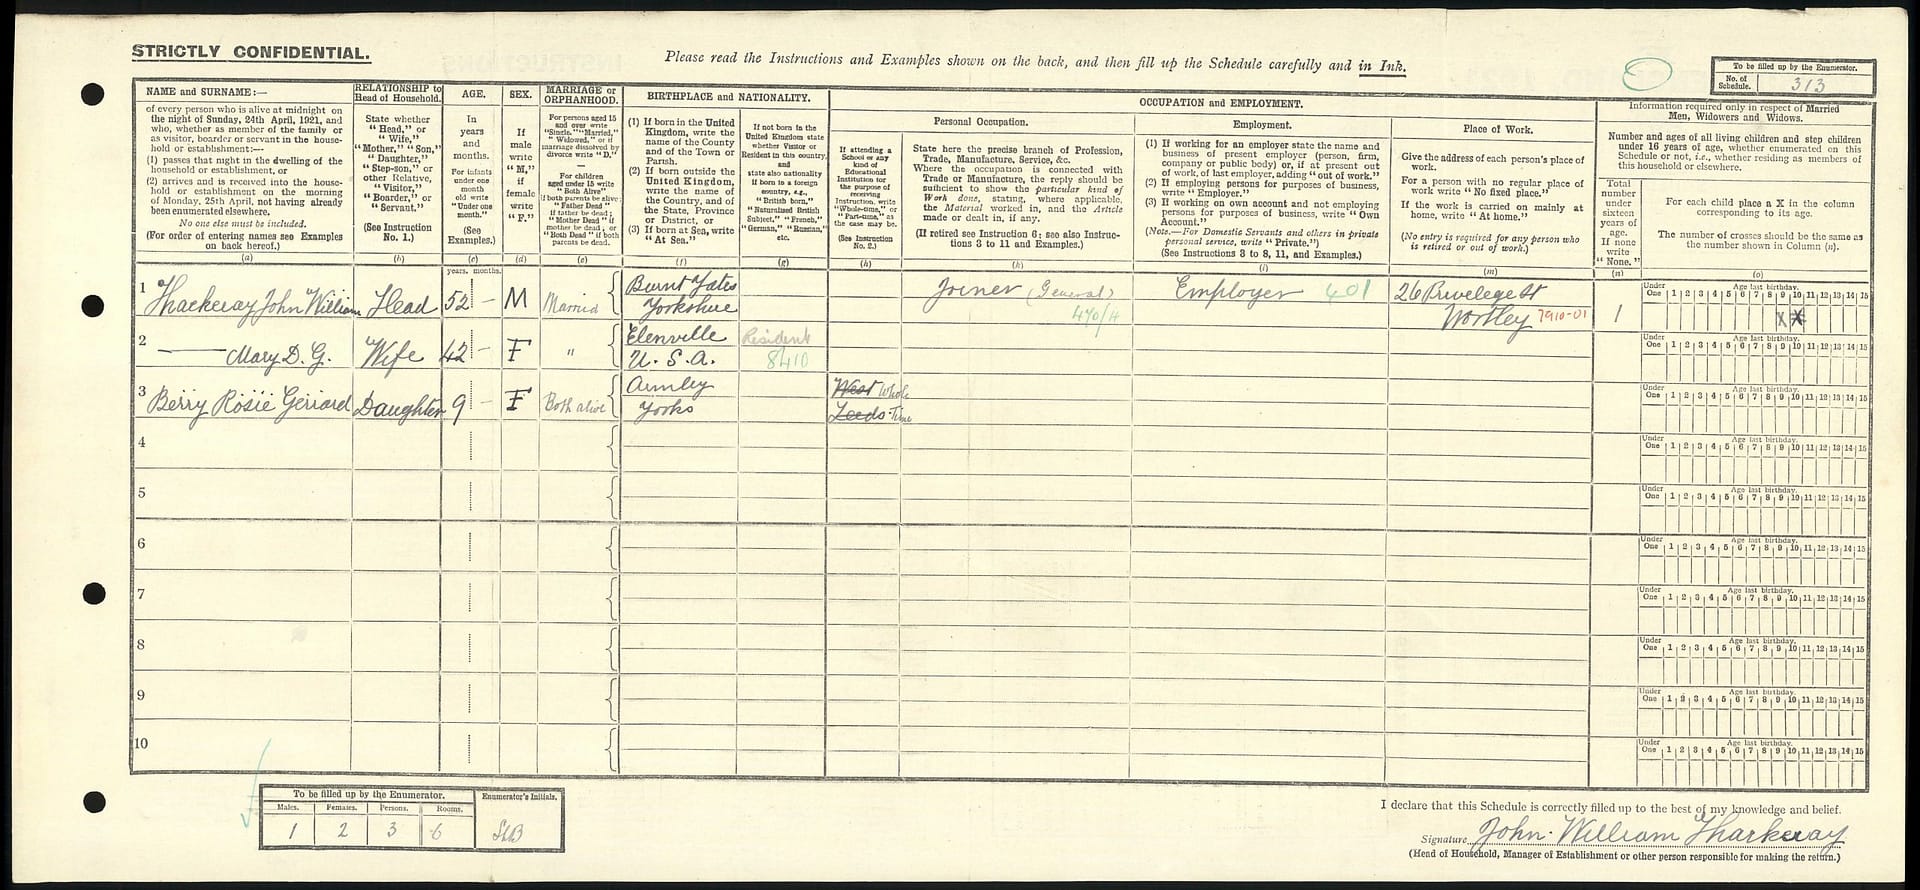 STRICTLY CONFIDENTIAL.
Please read the Instructions and Examples shown on the back, and then fill up the Schedule carefully and in Ink.
To be filled up by the Enumerator.
No. of Schedule. 313
NAME and SURNAME:—
of every person who is alive at midnight on
the night of Sunday, 24th April, 1921, and
who, whether as member of the family or
as visitor, boarder or servant in the house-
hold or establishment:—
(1) passes that night in the dwelling of the
household or establishment, or
(2) arrives and is received into the house-
hold or establishment on the morning
of Monday, 25th April, not having already
been enumerated elsewhere.
No one else must be included.
(For order of entering names see Examples
on back hereof.)
(a)
RELATIONSHIP to
Head of Household.
State whether
"Head," or
"Wife,"
"Mother," "Son,"
"Daughter,"
"Step-son," or
other Relative,
"Visitor,"
"Boarder," or
"Servant."
(See Instruction
No. 1.)
(b)
AGE.
In
years
and
months.
For infants
under one
month
old write
"Under one
month."
(See
Examples.)
(c)
years. months.
SEX.
If
male
write
"M,"
if
female
write
"F."
(d)
MARRIAGE or
ORPHANHOOD.
For persons aged 15
and over write
"Single," "Married,"
"Widowed," or if
marriage dissolved by
divorce write "D."
—
For children
aged under 15 write
"Both Alive"
if both parents be alive;
"Father Dead"
if father be dead;
"Mother Dead" if
mother be dead; or
"Both Dead" if both
parents be dead.
(e)
BIRTHPLACE and NATIONALITY.
(1) If born in the United
Kingdom, write the
name of the County
and of the Town or
Parish.
(2) If born outside the
United Kingdom,
write the name of
the Country, and of
the State, Province
or District, or
(3) If born at Sea, write
"At Sea."
(f)
If not born in the
United Kingdom state
whether Visitor or
Resident in this country,
and
state also nationality
if born in a foreign
country, e.g.,
"British born,"
"Naturalised British
Subject," "French,"
"German," "Russian,"
etc.
(g)
OCCUPATION and EMPLOYMENT.
If attending a
School or any
kind of
Educational
Institution for the
purpose of
receiving
Instruction, write
"Whole-time," or
"Part-time," as
the case may be.
(See Instruction
No. 2.)
(h)
Personal Occupation.
State here the precise branch of Profession,
Trade, Manufacture, Service, &c.
Where the occupation is connected with
Trade or Manufacture, the reply should be
sufficient to show the particular kind of
Work done, stating, where applicable,
the Material worked in, and the Article
made or dealt in, if any.
(If retired see Instruction 6; see also Instruc-
tions 3 to 11 and Examples.)
(k)
Employment.
(1) If working for an employer state the name and
business of present employer (person, firm,
company or public body) or, if at present out
of work, of last employer, adding "out of work."
(2) If employing persons for purposes of business,
write "Employer."
(3) If working on own account and not employing
persons for purposes of business, write "Own
Account."
(Note.—For Domestic Servants and others in private
personal service, write "Private.")
(See Instructions 3 to 8, 11, and Examples.)
(l)
Place of Work.
Give the address of each person's place of
work.
For a person with no regular place of
work write "No fixed place."
If the work is carried on mainly at
home, write "At home."
(No entry is required for any person who
is retired or out of work.)
(m)
Information required only in respect of Married
Men, Widowers and Widows.
Number and ages of all living children and step children
under 16 years of age, whether enumerated on this
Schedule or not, i.e., whether residing as members of
this household or elsewhere.
Total
number
under
sixteen
years of
age.
If none
write
"None."
(n)
For each child place a X in the column
corresponding to its age.
The number of crosses should be the same as
the number shown in Column (n).
(o)
1 Thackeray John William Head 52 – M Married Burnt Yates Yorkshire Joiner (General) 470/4 Employer 401 26 Privelege St Wortley 7910-01 1
Under One Age last birthday. 1 2 3 4 5 6 7 8 9 10 11 12 13 14 15
X X
2 —— Mary D. G. Wife 42 – F " Elenville U. S. A. Resident 8410
Under One Age last birthday. 1 2 3 4 5 6 7 8 9 10 11 12 13 14 15
3 Berry Rosie Gerrard Daughter 9 – F Both alive Armley Yorks West Leeds Whole Time
Under One Age last birthday. 1 2 3 4 5 6 7 8 9 10 11 12 13 14 15
4
Under One Age last birthday. 1 2 3 4 5 6 7 8 9 10 11 12 13 14 15
5
Under One Age last birthday. 1 2 3 4 5 6 7 8 9 10 11 12 13 14 15
6
Under One Age last birthday. 1 2 3 4 5 6 7 8 9 10 11 12 13 14 15
7
Under One Age last birthday. 1 2 3 4 5 6 7 8 9 10 11 12 13 14 15
8
Under One Age last birthday. 1 2 3 4 5 6 7 8 9 10 11 12 13 14 15
9
Under One Age last birthday. 1 2 3 4 5 6 7 8 9 10 11 12 13 14 15
10
Under One Age last birthday. 1 2 3 4 5 6 7 8 9 10 11 12 13 14 15
To be filled up by the Enumerator.
Males. Females. Persons. Rooms.
1 2 3 6
Enumerator's Initials.
I declare that this Schedule is correctly filled up to the best of my knowledge and belief.
Signature John William Tharkeray
(Head of Household, Manager of Establishment or other person responsible for making the return.)